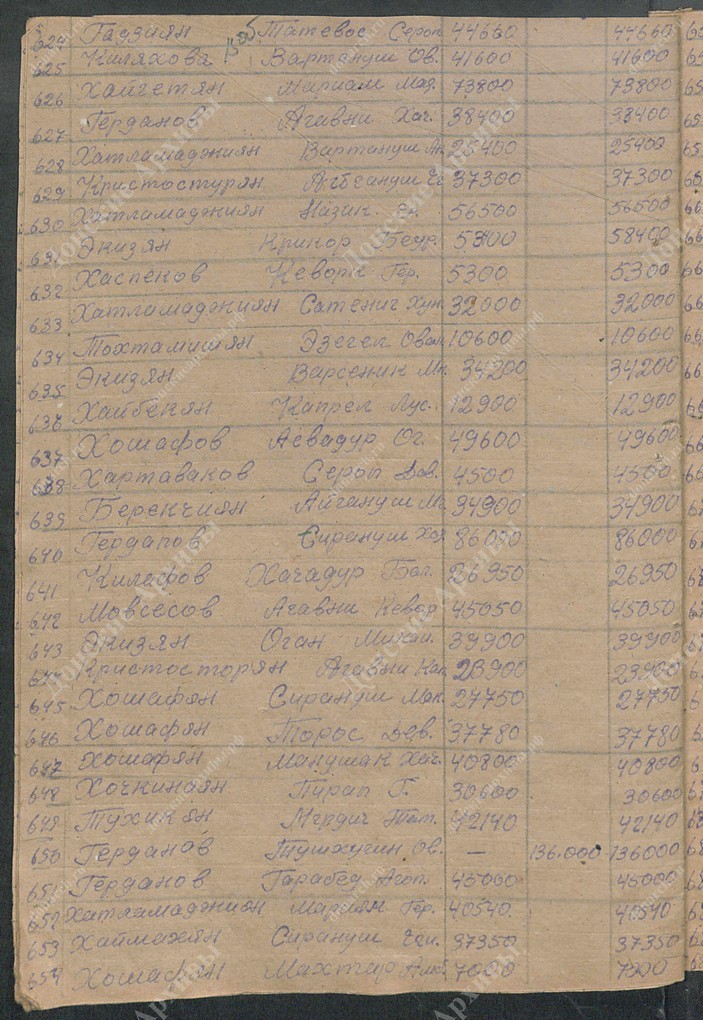 624 Гадзиян Татевос Сероп 44660 44660
625 Киляхова Вартануш Ов. 41600 41600
626 Хайгетян Мариам Мад. 73800 73800
627 Герданов Агавни Хач. 38400 38400
628 Хатламаджиян Вартануш 25400 25400
629 Кристостурян 37300 37300
630 Хатламаджиян Назик 56500 56500
631 Экизян Крикор 58400
632 Хаспеков Кеворк Гер. 5300 5300
633 Хатламаджиян Сатениг 32000 32000
634 Тохтамишян Эзегел Ован 10600 10600
635 Экизян Варсеник 34200 34200
636 Хайбекян Капрел Лус. 12900 12900
637 Хошафов Асвадур Ог. 49600 49600
638 Хартаваков Сероп Дов. 4500 4500
639 Беренчиян Айгануш 34900 34900
640 Гердапов Сирануш Хач 86000 86000
641 Килафов Хачадур 26950 26950
642 Мовсесов Агавни Кевор 45050 45050
643 Экизян Оган Михаи. 39900 39900
644 Кристосторян Агавни 23900 23900
645 Хошафян Сирануш Мак. 27750 27750
646 Хошафян Торос Дов. 37780 37780
647 Хошафян Манушак Хач. 40800 40800
648 Хочкинаян Пурап Г. 30600 30600
649 Тухикян Мгрдич 42140 42140
650 Герданов Тушхугин Ов. — 136.000 136000
651 Герданов Гарабед Агоп. 45000 45000
652 Хатламаджион Мариам Гер. 40540. 40540
653 Хаймахян Сирануш 37350 37350
654 Хошафян Махтар 7000